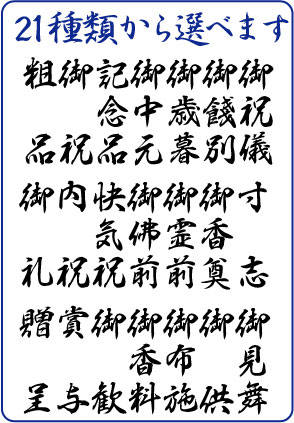 21種類から選べます
御祝儀
御餞別
御歳暮
御中元
記念品
御祝
粗品
寸志
御香奠
御霊前
御佛前
快気祝
内祝
御礼
御見舞
御供
御布施
御香料
御歓
賞与
贈呈